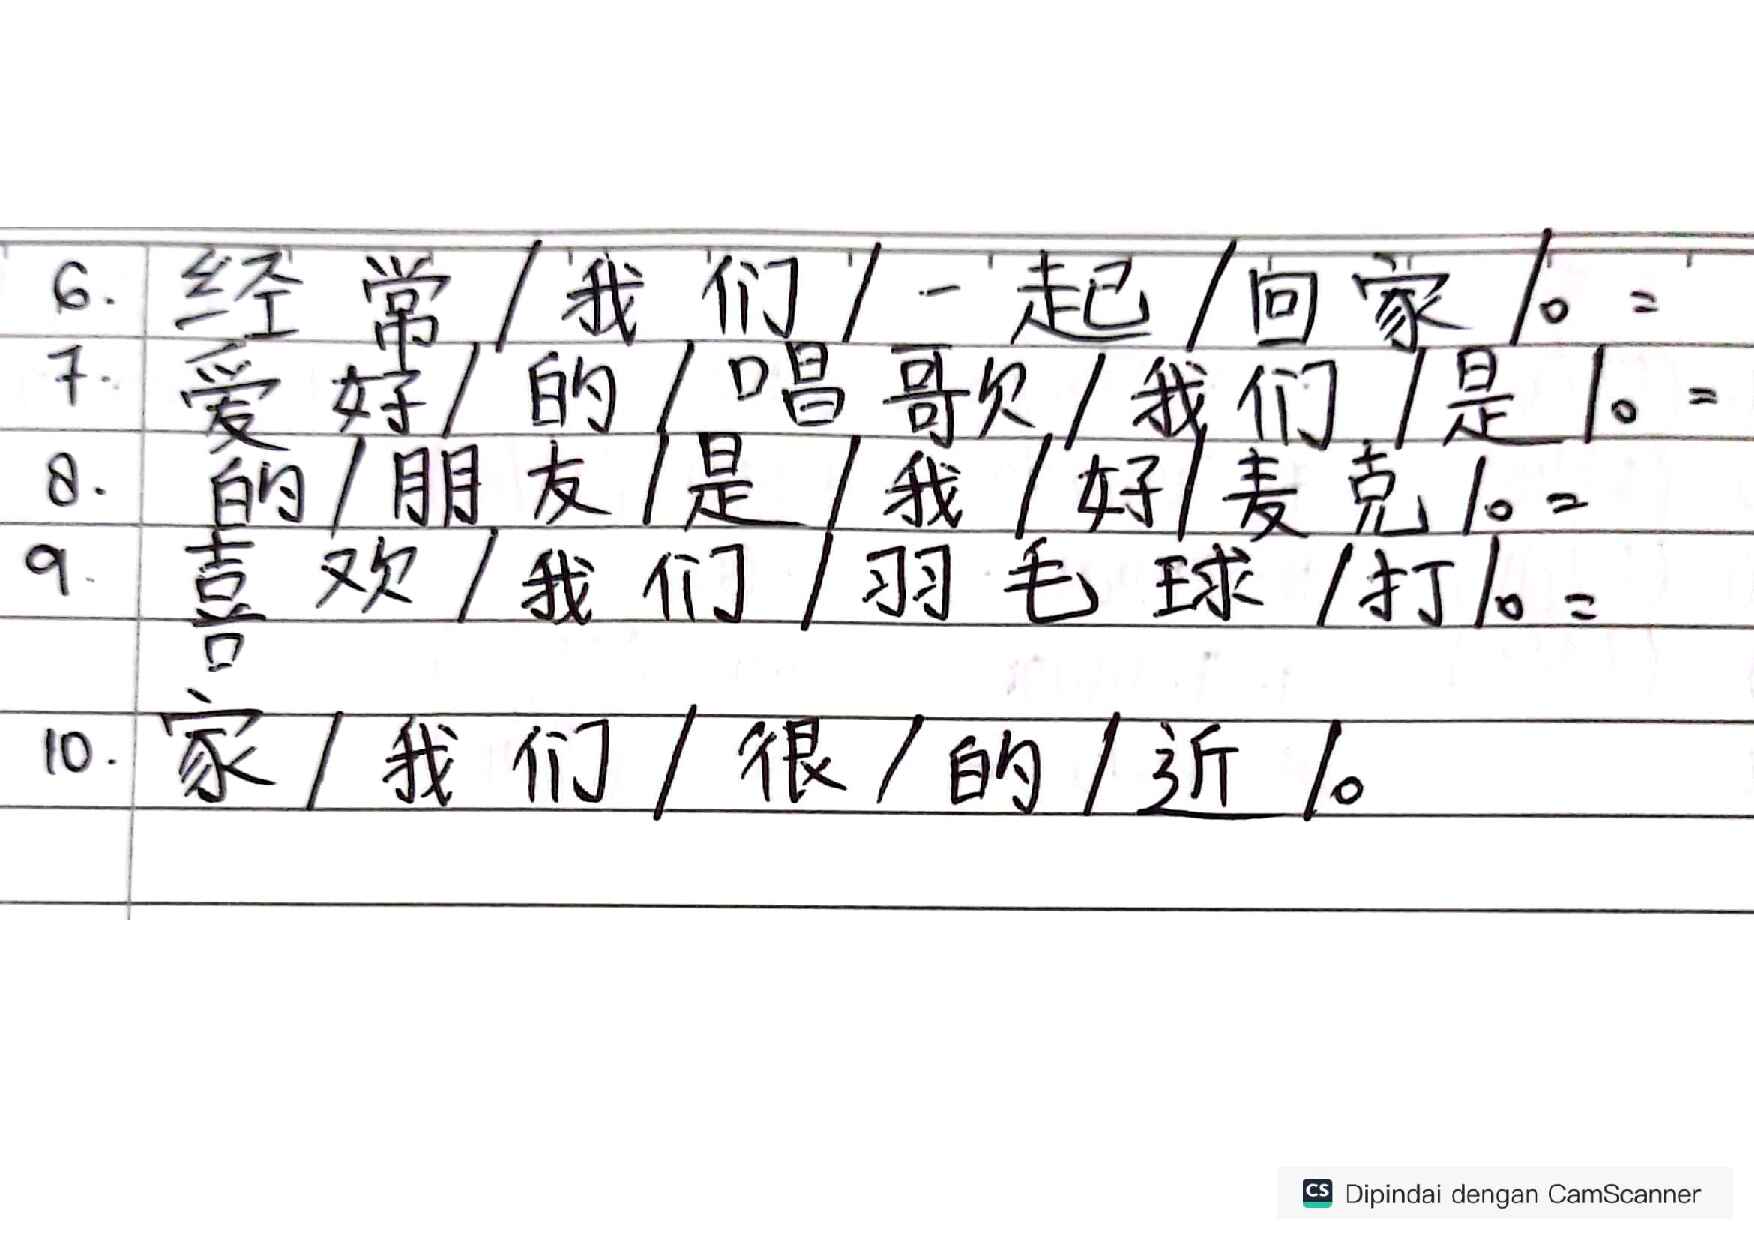 6. 经常/我们/一起/回家/。=
7. 爱好/的/唱歌/我们/是/。=
8. 的/朋友/是/我/好/麦克/。=
9. 喜欢/我们/羽毛球/打/。=
10. 家/我们/很/的/近/。
CS Dipindai dengan CamScanner